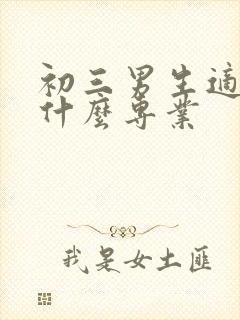 初三男生適
什麼專業
我是女土匪